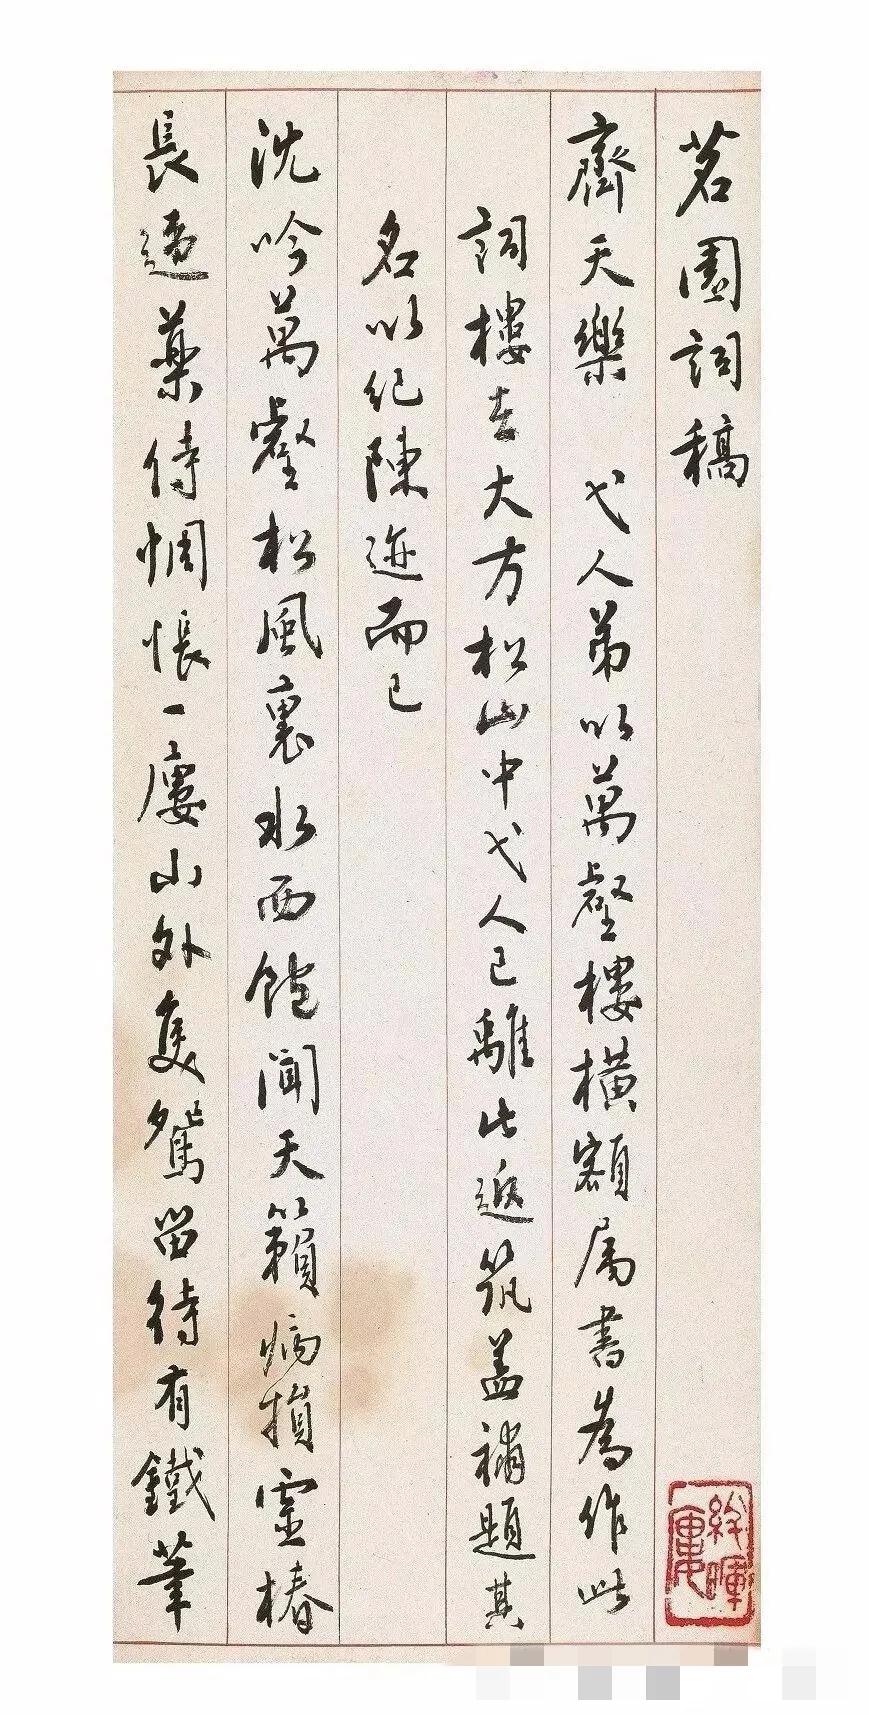 茗園詞稿
齊天樂 弋人弟以萬壑樓橫額屬書為作此
詞樓去大方松山中弋人已離此遊筑蓋補題其
名以紀陳迹而已
沈吟萬壑松風裏水西飽聞天籟病損靈椿
長遥藥侍惆悵一廔山外隻鴛留待有鐵筆